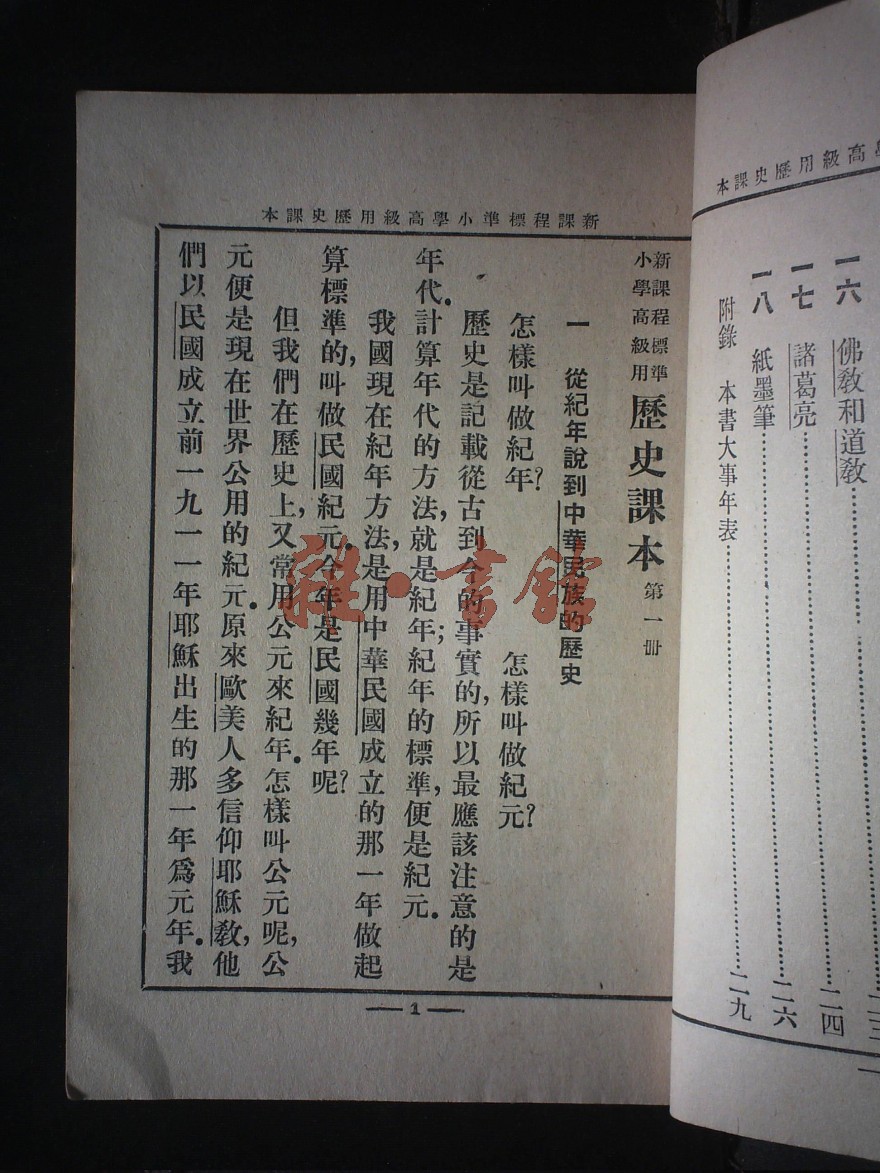 新課程標準小學高級用歷史課本
新課程標準
小學高級用
歷史課本 第一册
一 從紀年說到中華民族的歷史
怎樣叫做紀年? 怎樣叫做紀元?
歷史是記載從古到今的事實的,所以最應該注意的是
年代.計算年代的方法,就是紀年;紀年的標準,便是紀元.
我國現在紀年方法,是用中華民國成立的那一年做起
算標準的,叫做民國紀元.今年是民國幾年呢?
但我們在歷史上,又常用公元來紀年.怎樣叫公元呢,公
元便是現在世界公用的紀元.原來歐美人多信仰耶穌敎,他
們以民國成立前一九一一年耶穌出生的那一年爲元年.我
1
高級用歷史課本
一六 佛敎和道敎
一七 諸葛亮 二四
一八 紙墨筆 二六
附錄 本書大事年表 二九
雜·書館